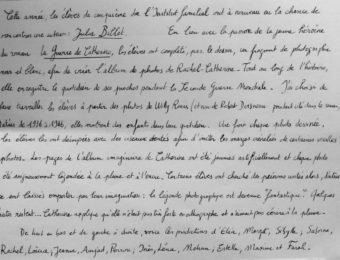 Cette année, les élèves de cinquième de l'Institut familial ont à nouveau eu la chance de
rencontrer une auteur : Julia Billet. En lien avec la passion de la jeune héroïne
du roman La Guerre de Catherine, les élèves ont complété, par le dessin, un fragment de photographie
noir et blanc, afin de créer l'album de photos de Rachel-Catherine. Tout au long de l'histoire,
elle enregistre le quotidien de ses proches pendant la Seconde Guerre Mondiale. J'ai choisi de
faire travailler les élèves à partir des photos de Willy Ronis et de Robert Doisneau
de 1936 à 1946, elles montrent des enfants dans leur quotidien. Une fois chaque photo dessinée,
les élèves les ont découpées avec des ciseaux crantés afin d'imiter les marges
photos. Les pages de l'album imaginaire de Catherine ont été jaunies artificiellement et chaque photo
été soigneusement légendée à la plume et à l'encre. Certains élèves ont cherché des prénoms usités alors,
se sont laissés emporter par leur imagination : la légende photographique est devenue "fantastique" ! Quelques
restent... Catherine explique qu'elle n'était pas très forte en orthographe et n'aimait pas écrire à la plume.
De haut en bas et de gauche à droite, voici les productions d'Elsa, Margot, Sibylle, Sabrina,
Rachel, Louise, Jeanne, Perrine, Inès, Léna, Estelle, Maxime et